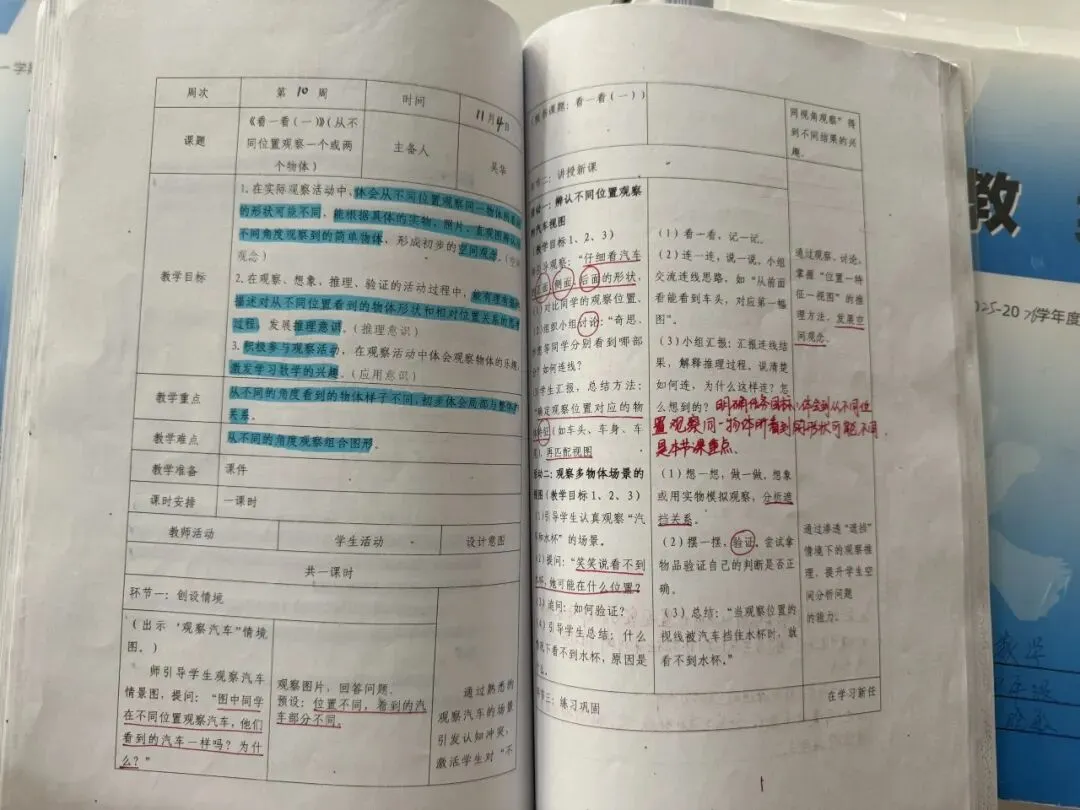 一学期
周次
第 10 周
时间
11月4日
课题
《看一看（一）》（从不
同位置观察一个或两
个物体）
主备人
吴华
教学目标
1、在实际观察活动中，体会从不同位置观察同一物体所看到
的形状可能不同，能根据具体的实物、照片、直观图辨认从
不同角度观察到的简单物体，形成初步的空间观念。（空间
观念）
2、在观察、想象、推理、验证的活动过程中，能有理有据地
描述对从不同位置看到的物体形状和相对位置关系的思考
过程，发展推理意识。（推理意识）
3、积极参与观察活动，在观察活动中体会观察物体的乐趣，
激发学习数学的兴趣。（应用意识）
教学重点
从不同的角度看到的物体样子不同，初步体会局部与整体的
关系。
教学难点
从不同的角度观察组合图形。
教学准备
课件
课时安排
一课时
教师活动
学生活动
设计意图
共一课时
环节一：创设情境
（出示“观察汽车”情境
图。）
师引导学生观察汽车
情景图，提问：“图中同学
在不同位置观察汽车，他们
看到的汽车一样吗？为什
么？”
观察图片，回答问题。
预设：位置不同，看到的汽
车部分不同。
通过熟悉的
观察汽车的场景
引发认知冲突，
激活学生对“不
课题：看一看（一））
同视角观察”得
到不同结果的兴
趣。
二：讲授新课
活动一：辨认不同位置观察
的汽车视图
（教学目标1、2、3）
观察：“仔细看汽车
正面、侧面、后面的形状，
（1）对比同学的观察位置。
（2）组织小组讨论：“奇思、
等同学分别看到哪部
分？如何连线？
学生汇报，总结方法：
“确定观察位置对应的物
特征（如车头、车身、车
），再匹配视图
（1）看一看，记一记。
（2）连一连，说一说，小组
交流连线思路，如“从前面
看能看到车头，对应第一幅
图”。
（3）小组汇报：汇报连线结
果，解释推理过程。说清楚
如何连，为什么这样连？怎
么想到的？
明确任务目标，体会到从不同位
置观察同一物体所看到的形状可能不同，
是本节课重点
通过观察、讨论，
掌握“位置—特
征—视图”的推
理方法，发展空
间观念。
活动二：观察多物体场景的
视图（教学目标1、2、3）
（1）引导学生认真观察“汽
车和水杯”的场景。
（2）提问：“笑笑说看不到
水杯，她可能在什么位置？
（3）追问：如何验证？
（4）引导学生总结：什么
情况下看不到水杯，原因是
什么。
（1）想一想，做一做。想象
或用实物模拟观察，分析遮
挡关系。
（2）摆一摆，验证，尝试拿
物品验证自己的判断是否正
确。
（3）总结：“当观察位置的
视线被汽车挡住水杯时，就
看不到水杯。”
通过渗透“遮挡”
情境下的观察推
理，提升学生空
间分析问题
的能力。
环节三：练习巩固
在学习新任
1
教
2025-2026学年度
数学